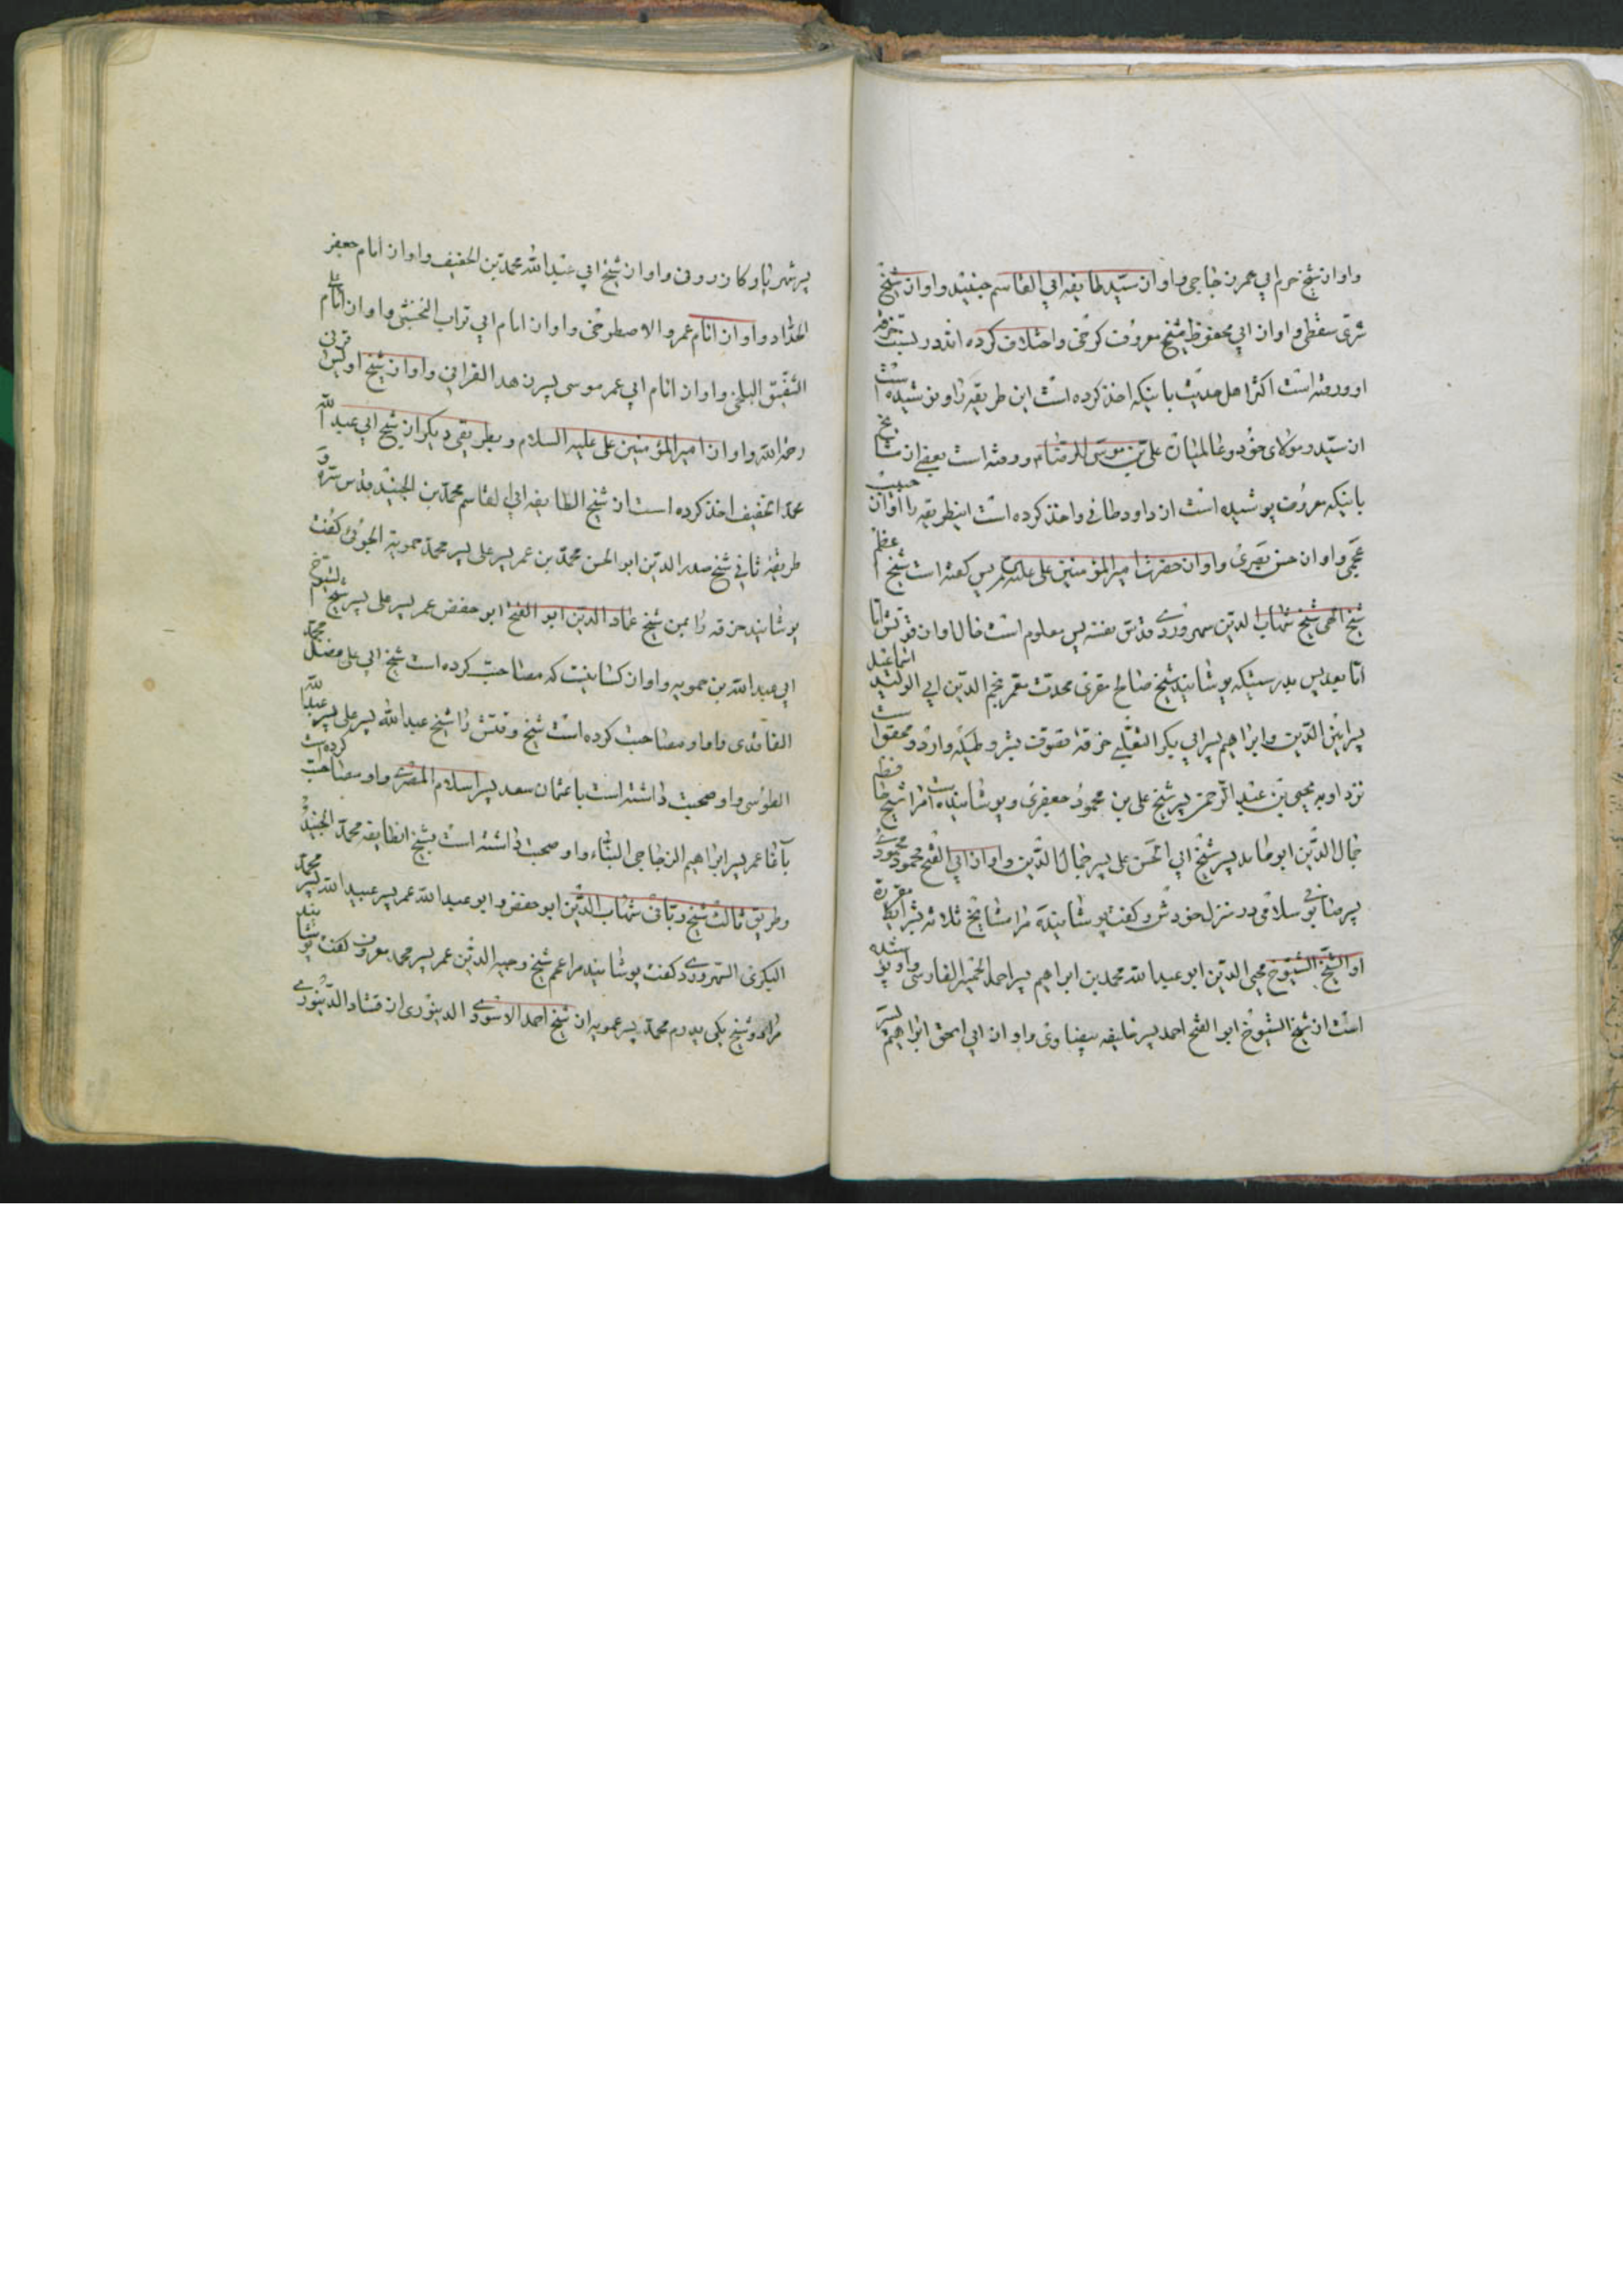 واو از شیخ حرم ابی عمر زجاجی و او از سید طایفه ابی القاسم جنید و او از شیخ
سری سقطی و او از ابی محفوظ شیخ معروف کرخی و اختلاف کرده اند در نسبت خرقه
او و رفته است اکثر اهل حدیث باینکه اخذ کرده است این طریقه را و پوشیده است
از سید و مولای خود و عالمیان علی بن موسی الرضا و رفته است بعضی از مشایخ
باینکه معروف پوشیده است از داود طائی و اخذ کرده است اینطریقه را او از حبیب
عجمی و او از حسن بصری و او از حضرت امیر المؤمنین علی علیه پس گفته است شیخ اعظم
شیخ الهی شیخ شهاب الدین سهروردی قدس نفسه پس معلوم است
اما بعد پس بدرستیکه پوشانید شیخ صالح مقری محدث معمر نجم الدین ابی الولید اسماعیل
پسر الدین و ابراهیم پسر ابی بکر التفلی خرقه تصوف
نزد او به یحیی بن عبد الرحمن پسر شیخ علی بن محمود جعفری و پوشانیده است مرا شیخ
جمال الدین ابو حامد پسر شیخ ابی الحسن علی پسر جمال الدین و او از ابی الفتح محمود محمودی
پسر صابونی در منزل خودش و گفت پوشانیده مرا مشایخ ثلاثه
او الشیخ الشیوخ محیی الدین ابو عبد الله محمد بن ابراهیم پسر احمد الفارسی و او پوشیده
است از شیخ الشیوخ ابو الفتح احمد پسر خلیفه بیضاوی و او از ابی اسحق ابراهیم پسر
پسر شهریار کازرونی و او از شیخ ابی عبد الله محمد بن الخفیف و او از امام جعفر
الحذاء و او از امام عمرو الاصطرخی و او از امام ابی تراب النخشبی و او از امام علی
الشفیق البلخی و او از امام ابی عمر موسی پسر و او از شیخ اویس قرنی
رحمه الله و او از امیر المؤمنین علی علیه السلام و بطریقی دیگر از شیخ ابی عبد الله
محمد الخفیف اخذ کرده است از شیخ الطایفه ابی القاسم محمد بن الجنید قدس سره و
طریقه ثانی شیخ صدر الدین ابو الحسن محمد بن عمر پسر علی پسر محمد حمویه الجوئی گفت
پوشانید خرقه را بمن شیخ عماد الدین ابو الفتح ابو حفض عمر پسر علی پسر شیخ الشیوخ
ابی عبد الله بن حمویه و او از کسانیست که مصاحبت کرده است شیخ ابی علی فضل محمد
الفامدی و او مصاحبت کرده است شیخ وقتش را شیخ عبد الله پسر علی پسر عبد الله
الطوسی و او صحبت داشته است با عثمان سعد پسر اسلام المغربی و او مصاحبت کرده است
باقا عمر پسر ابراهیم الزجاجی و او صحبت داشته است بشیخ الطایفه محمد الجنید
وطریق ثالث شیخ ربانی شهاب الدین ابو حفض و ابو عبد الله عمر پسر عبد الله پسر محمد
البکری السهروردی گفت پوشانید مرا عمم شیخ وجیه الدین عمر پسر محمد معروف گفت پوشانید
مرا دو شیخ یکی پدرم محمد پسر عمویه از شیخ احمد الاسودی الدینوری از ممشاد الدینوری